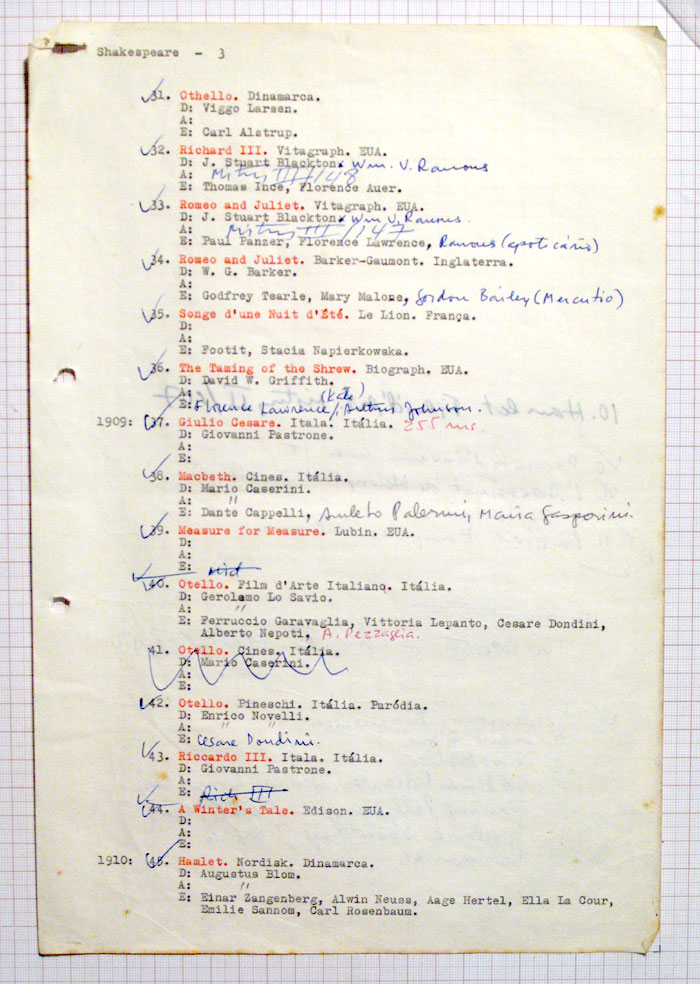 Shakespeare - 3
31. Othello. Dinamarca.
D: Viggo Larsen.
A:
E: Carl Alstrup.
32. Richard III. Vitagraph. EUA.
D: J. Stuart Blackton x Wm. V. Ranous
A: Mitry III/148
E: Thomas Ince, Florence Auer.
33. Romeo and Juliet. Vitagraph. EUA.
D: J. Stuart Blackton x Wm V. Ranous.
A: Mitry III/147
E: Paul Panzer, Florence Lawrence, Ranous (apoticário)
34. Romeo and Juliet. Barker-Gaumont. Inglaterra.
D: W. G. Barker.
A:
E: Godfrey Tearle, Mary Malone, Gordon Bailey (Mercutio)
35. Songe d'une Nuit d'Été. Le Lion. França.
D:
A:
E: Footit, Stacia Napierkowska.
36. The Taming of the Shrew. Biograph. EUA.
D: David W. Griffith.
A: (Kate)
E: Florence Lawrence, Arthur Johnson.
1909: 37. Giulio Cesare. Itala. Itália. 255 ms.
D: Giovanni Pastrone.
A:
E:
38. Macbeth. Cines. Itália.
D: Mario Caserini.
A: "
E: Dante Cappelli, Amleto Palermi, Maria Gasperini.
39. Measure for Measure. Lubin. EUA.
D:
A:
E:
40. Otello. Film d'Arte Italiano. Itália.
D: Gerolamo Lo Savio.
A: "
E: Ferruccio Garavaglia, Vittoria Lepanto, Cesare Dondini,
Alberto Nepoti, A. Pezzaglia.
41. Otello. Cines. Itália.
D: Mario Caserini.
A:
E:
42. Otello. Pineschi. Itália. Paródia.
D: Enrico Novelli.
A: " "
E: Cesare Dondini.
43. Riccardo III. Itala. Itália.
D: Giovanni Pastrone.
A:
E: Rich III
44. A Winter's Tale. Edison. EUA.
D:
A:
E:
1910: 45. Hamlet. Nordisk. Dinamarca.
D: Augustus Blom.
A: "
E: Einar Zangenberg, Alwin Neuss, Aage Hertel, Ella La Cour,
Emilie Sannom, Carl Rosenbaum.